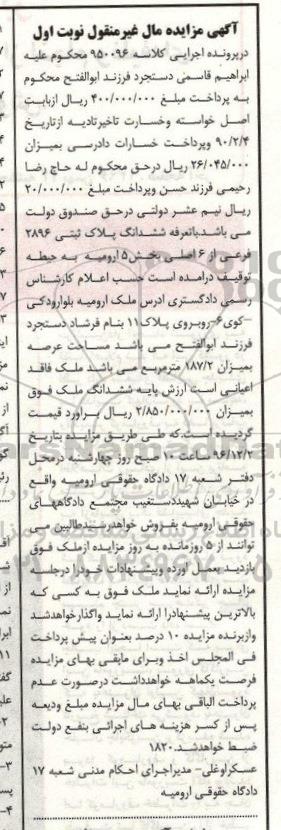 آگهی مزایده مال غیرمنقول نوبت اول
درپرونده اجرایی کلاسه ۹۵۰۰۹۶ محکوم علیه
ابراهیم قاسمی دستجرد فرزند ابوالفتح محکوم
به پرداخت مبلغ ۴۰۰/۰۰۰/۰۰۰ ریال ازبابت
اصل خواسته وخسارت تاخیرتادیه ازتاریخ
۹۰/۲/۴ وپرداخت خسارات دادرسی بمیزان
۲۶/۰۴۵/۰۰۰ ریال درحق محکوم له حاج رضا
رحیمی فرزند حسن وپرداخت مبلغ ۲۰/۰۰۰/۰۰۰
ریال نیم عشر دولتی درحق صندوق دولت
می باشد.بانعرفه ششدانگ پلاک ثبتی ۲۸۹۶
فرعی از ۶ اصلی بخش۵ ارومیه به حیطه
توقیف درامده است حسب اعلام کارشناس
رسمی دادگستری ادرس ملک ارومیه بلوارودکی
-کوی۶-روبروی پلاک۱۱ بنام فرشاد دستجرد
فرزند ابوالفتح می باشد مساحت عرصه
بمیزان ۱۸۷/۲ مترمربع می باشد ملک فاقد
اعیانی است ارزش پایه ششدانگ ملک فوق
بمیزان ۲/۸۵۰/۰۰۰/۰۰۰ ریال براورد قیمت
گردیده است.که طی طریق مزایده بتاریخ
۹۶/۱۲/۲ ساعت ۱۰ صبح روز چهارشنبه درمحل
دفتر شعبه ۱۷ دادگاه حقوقی ارومیه واقع
در خیابان شهیددستغیب مجتمع دادگاههای
حقوقی ارومیه بفروش خواهدرسیدطالبین می
توانند از ۵ روزمانده به روز مزایده ازملک فوق
بازدید بعمل اورده وپیشنهادات خودرا درجلسه
مزایده ارائه نماید ملک فوق به کسی که
بالاترین پیشنهادرا ارائه نماید واگذارخواهدشد
وازبرنده مزایده ۱۰ درصد بعنوان پیش پرداخت
فی المجلس اخذ وبرای مابقی بهای مزایده
فرصت یکماهه خواهدداشت درصورت عدم
پرداخت الباقی بهای مال مزایده مبلغ ودیعه
پس از کسر هزینه های اجرائی بنفع دولت
ضبط خواهدشد.۱۸۲۰
عسکراوغلی- مدیراجرای احکام مدنی شعبه ۱۷
دادگاه حقوقی ارومیه